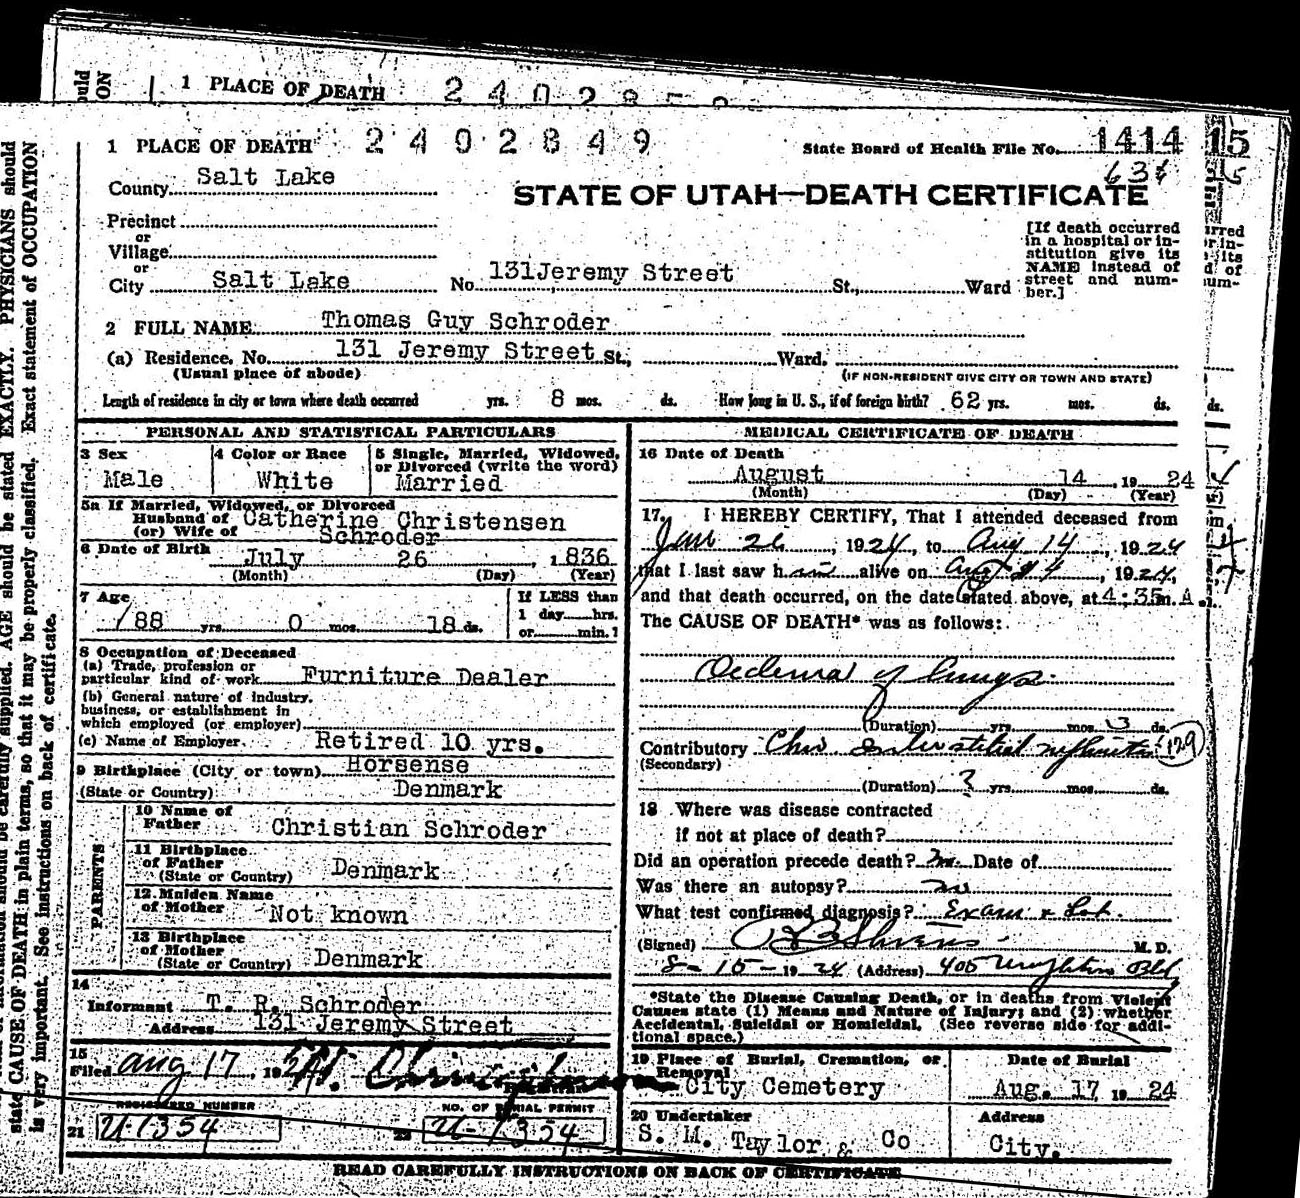 1 PLACE OF DEATH
1 PLACE OF DEATH 2402849
State Board of Health File No. 1414 15
County Salt Lake
STATE OF UTAH—DEATH CERTIFICATE
Precinct
or
Village
or
City Salt Lake No. 131 Jeremy Street St., Ward
[If death occurred
in a hospital or in-
stitution give its
NAME instead of
street and num-
ber.]
2 FULL NAME Thomas Guy Schroder
(a) Residence. No. 131 Jeremy Street St., Ward.
(Usual place of abode) (IF NON-RESIDENT GIVE CITY OR TOWN AND STATE)
Length of residence in city or town where death occurred yrs. 8 mos. ds. How long in U. S., if of foreign birth? 62 yrs. mos. ds.
PERSONAL AND STATISTICAL PARTICULARS
3 Sex
Male
4 Color or Race
White
5 Single, Married, Widowed,
or Divorced (write the word)
Married
5a If Married, Widowed, or Divorced
Husband of Catherine Christensen
(or) Wife of Schroder
6 Date of Birth July 26, 1836
(Month) (Day) (Year)
7 Age
88 yrs. 0 mos. 18 ds.
If LESS than
1 day hrs.
or min.?
8 Occupation of Deceased
(a) Trade, profession or
particular kind of work Furniture Dealer
(b) General nature of industry,
business, or establishment in
which employed (or employer)
(c) Name of Employer Retired 10 yrs.
9 Birthplace (City or town) Horsense
(State or Country) Denmark
PARENTS
10 Name of
Father Christian Schroder
11 Birthplace
of Father
(State or Country) Denmark
12 Maiden Name
of Mother Not known
13 Birthplace
of Mother
(State or Country) Denmark
14
Informant T. R. Schroder
Address 131 Jeremy Street
15
Filed Aug 17, 19
REGISTERED NUMBER
21 U-1354
NO. OF BURIAL PERMIT
22 U-1354
MEDICAL CERTIFICATE OF DEATH
16 Date of Death
August 14, 1924
(Month) (Day) (Year)
17 I HEREBY CERTIFY, That I attended deceased from
Jan 26, 1924, to Aug 14, 1924
that I last saw him alive on Aug 14, 1924,
and that death occurred, on the date stated above, at 4:35 m. A.
The CAUSE OF DEATH* was as follows:
Oedema of lungs.
(Duration) yrs. mos. 3 ds.
Contributory Chro interstitial nephritis 129
(Secondary)
(Duration) 3 yrs. mos. ds.
18 Where was disease contracted
if not at place of death?
Did an operation precede death? no Date of
Was there an autopsy? no
What test confirmed diagnosis? Exam & Lab.
(Signed) M. D.
8-15-1924 (Address) 405 Bld
*State the Disease Causing Death, or in deaths from Violent
Causes state (1) Means and Nature of Injury; and (2) whether
Accidental, Suicidal or Homicidal. (See reverse side for addi-
tional space.)
19 Place of Burial, Cremation, or
Removal
City Cemetery
Date of Burial
Aug. 17 1924
20 Undertaker
S. M. Taylor & Co
Address
City.
READ CAREFULLY INSTRUCTIONS ON BACK OF CERTIFICATE